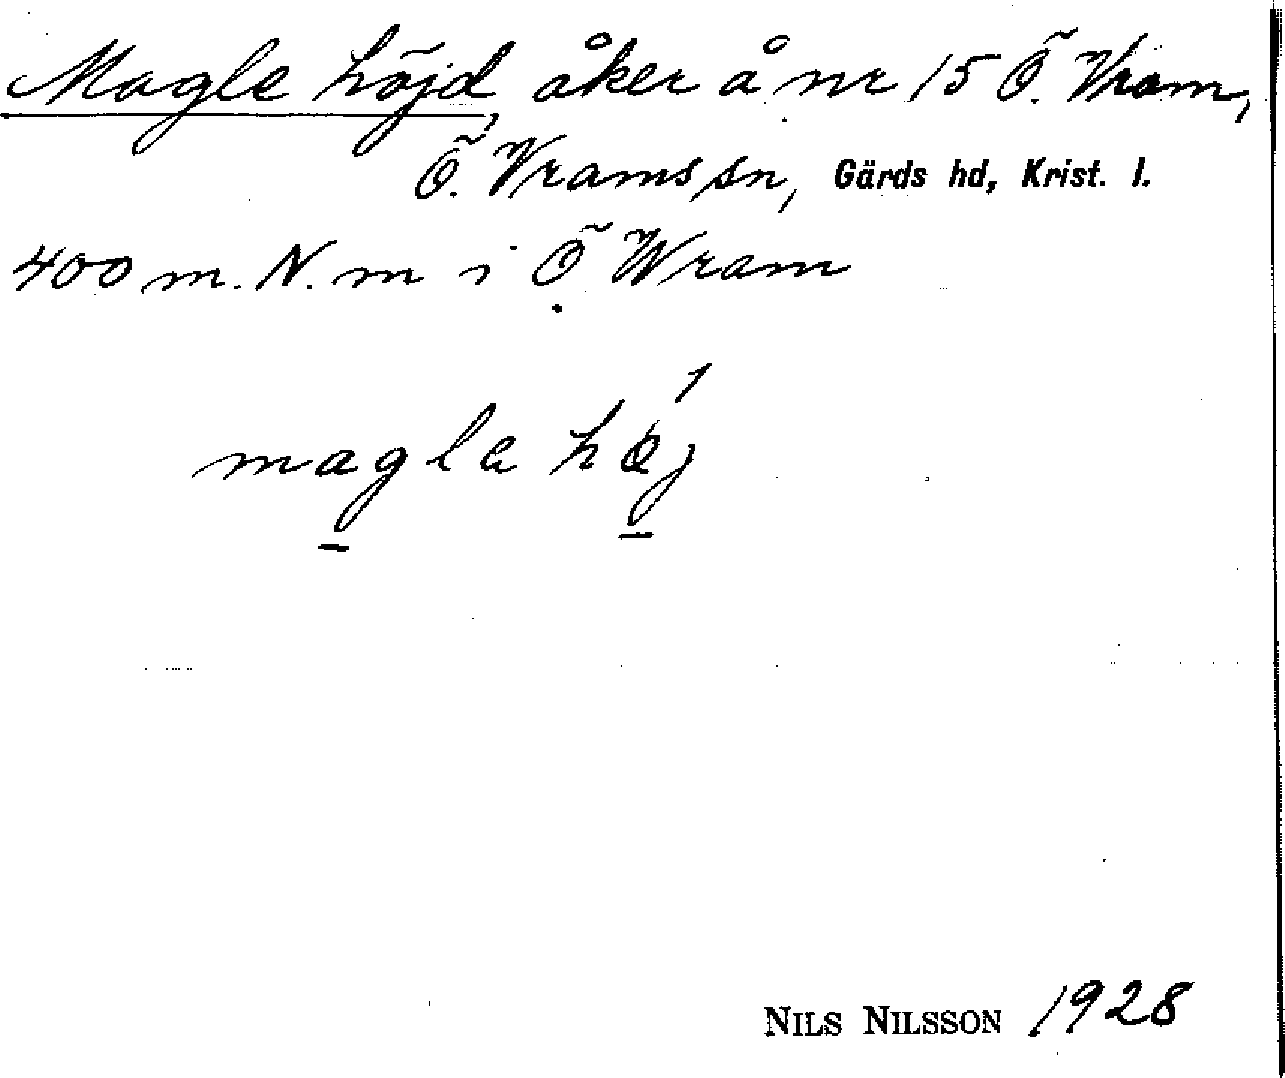 Magle höjd, åker å nr 15 Ö. Vram,
Ö. Vrams sn, Gärds hd, Krist. l.
400 m. N. m i Ö Wram
magla høj
NILS NILSSON 1928